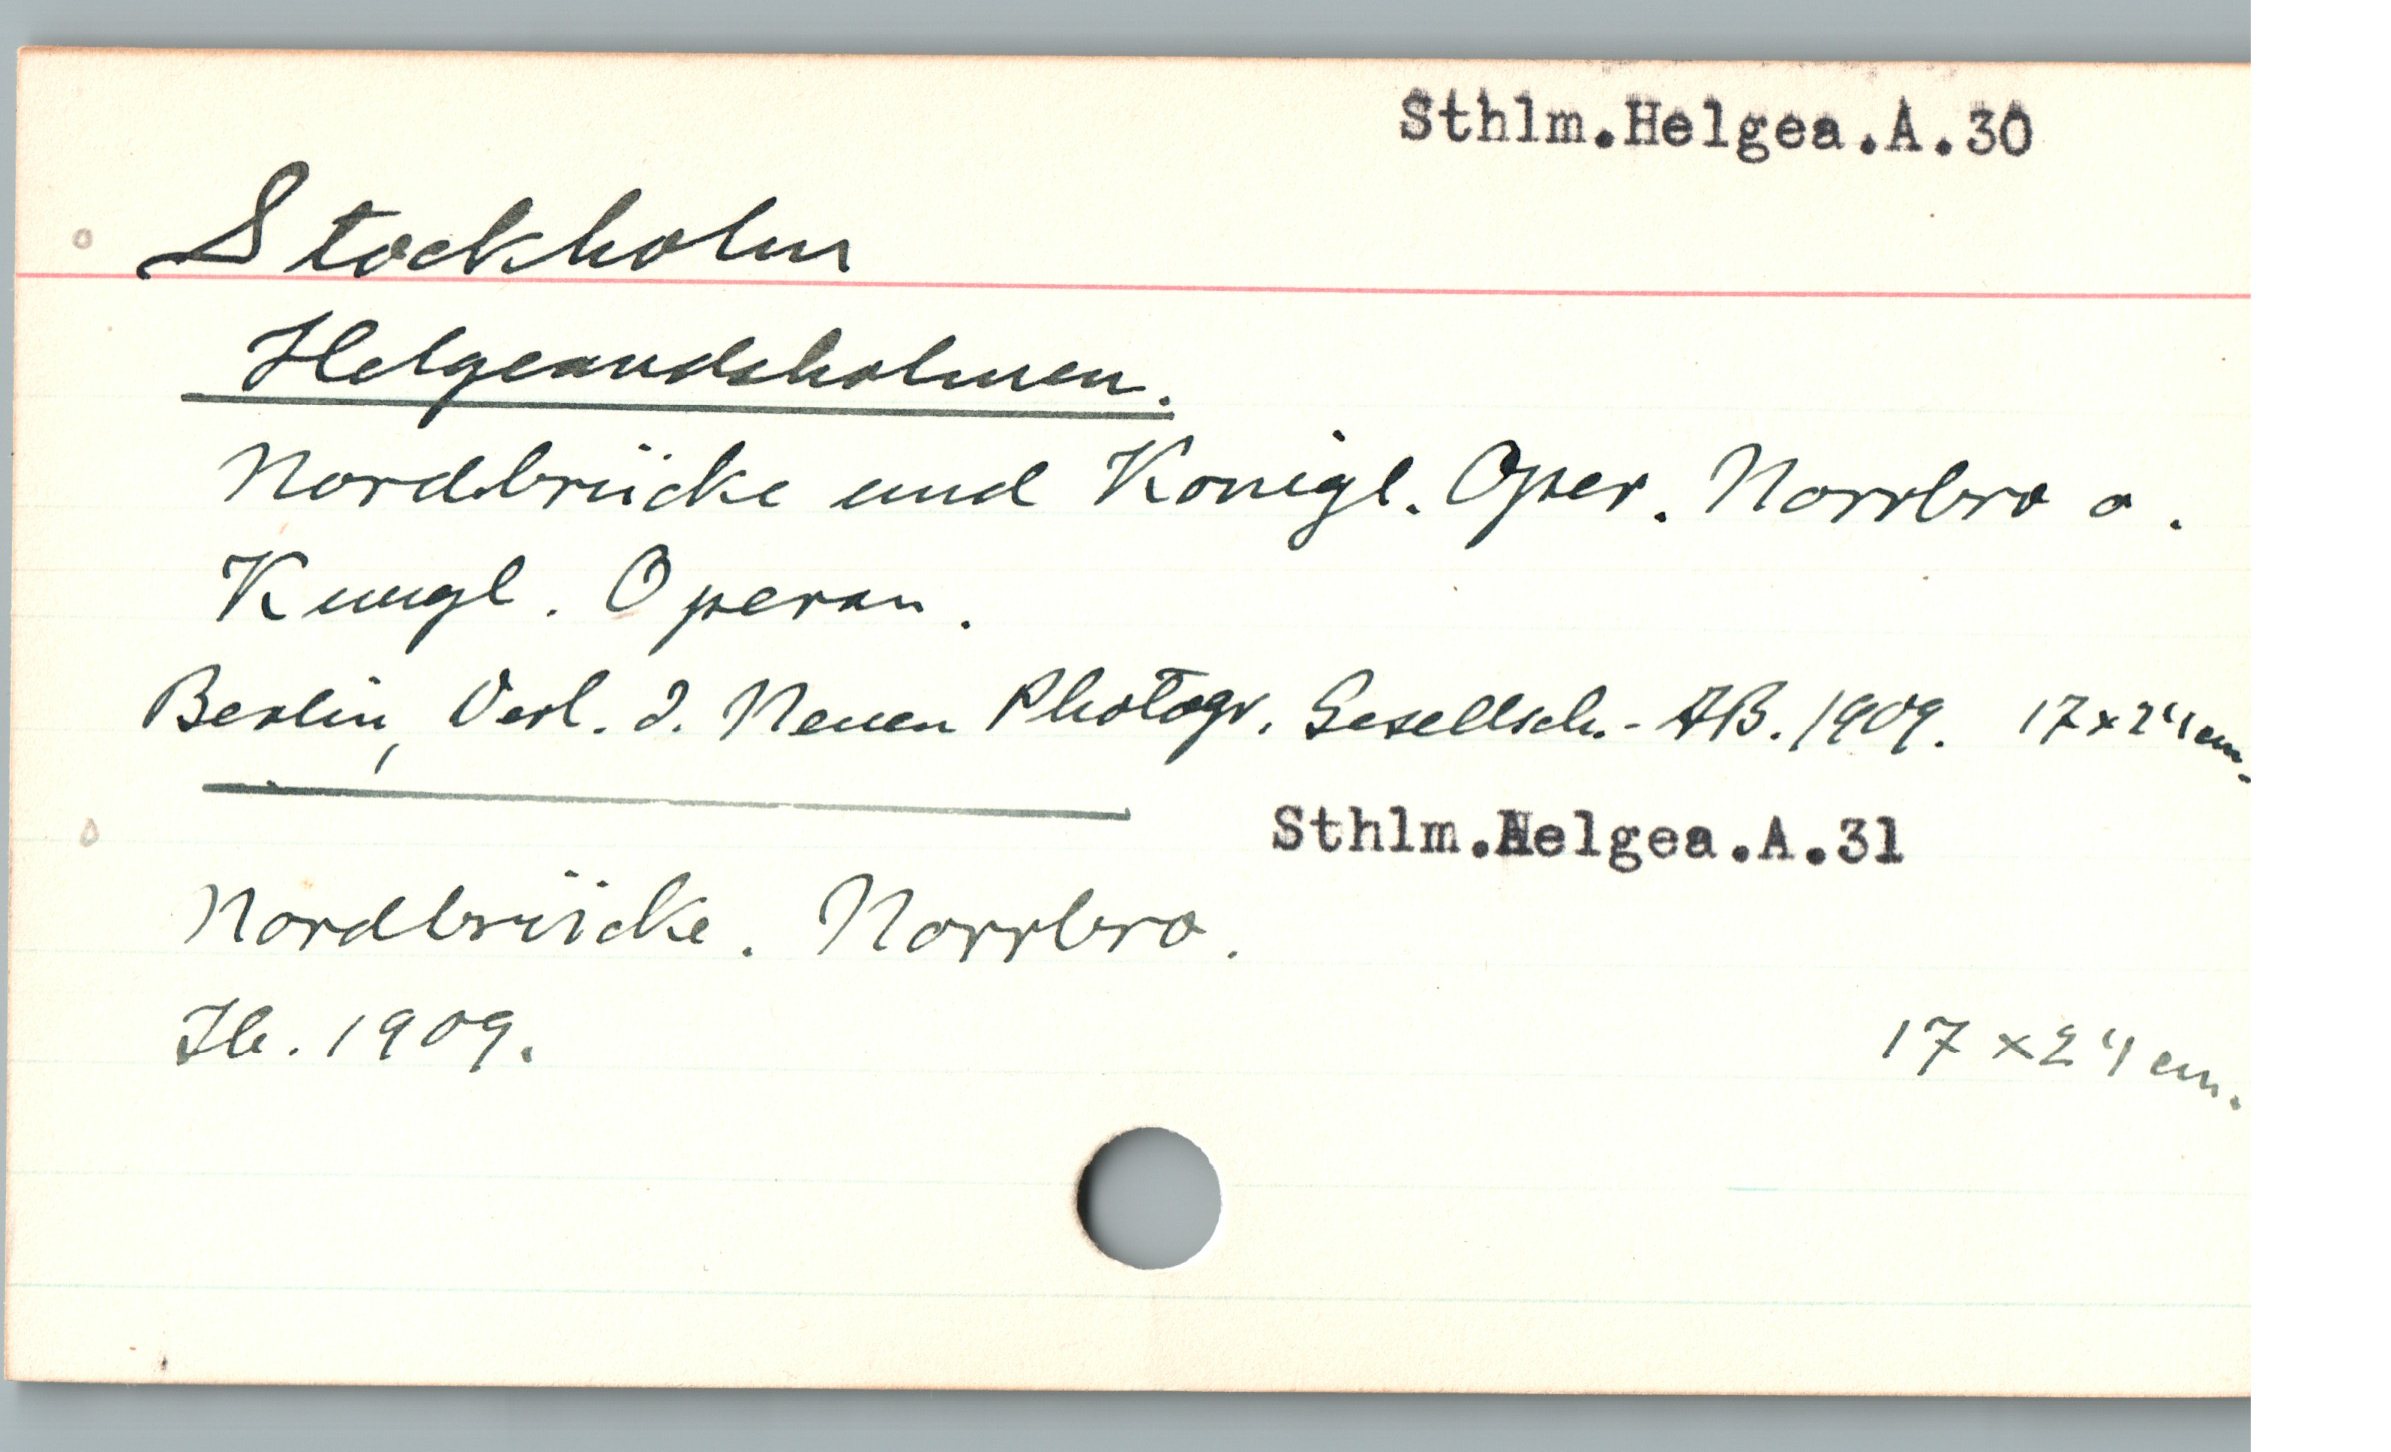 Sthlm.Helgea.A.30
Stockholm
Helgeandsholmen.
Nordbrücke und Konigl. Oper. Norrbro o.
Kungl. Operan.
Berlin, Verl. d. Neuen Photogr. Gesellsch.- AB. 1909. 17x24 cm.
Sthlm.Helgea.A.31
Nordbrücke. Norrbro.
Ib. 1909. 17 x 24 cm.